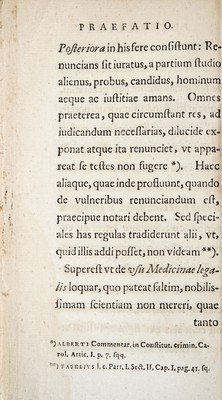 PRAEFATIO.
Posteriora in his fere consistunt: Re-
nuncians sit iuratus, a partium studio
alienus, probus, candidus, hominum
aeque ac iustitiae amans. Omnes
praeterea, quae circumstant res, ad
iudicandum necessarias, dilucide ex-
ponat atque ita renunciet, vt appa-
reat se testes non fugere *). Haec
aliaque, quae inde profluunt, quando
de vulneribus renunciandum est,
praecipue notari debent. Sed speci-
ales has regulas tradiderunt alii, vt,
quid illis addi posset, non videam **).
Superest vt de vsu Medicinae lega-
lis loquar, quo pateat saltim, nobilis-
simam scientiam non mereri, quae
tanto
*) ALBERTI Commentar. in Constitut. crimin. Ca-
rol. Artic. I. p. 7. sqq.
**) FASELIVS l. c. Part. I. Sect. II. Cap. I. pag. 41. sq.